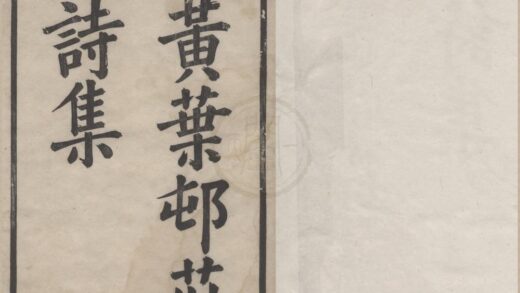 黃葉邨莊
詩集